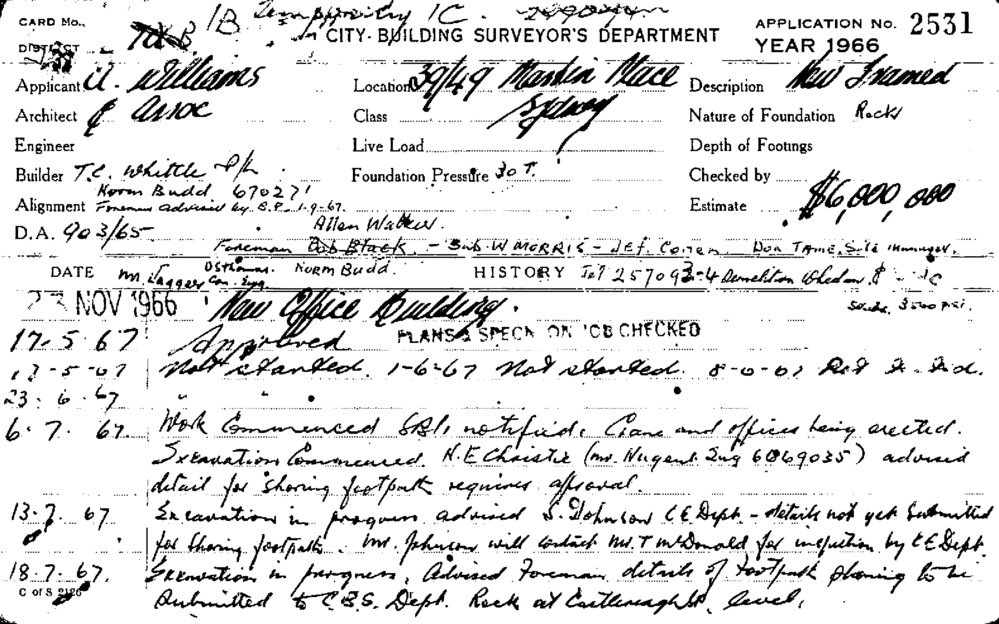 CARD No. 1B Temporary 1C.
DISTRICT CITY BUILDING SURVEYOR'S DEPARTMENT APPLICATION No. 2531
YEAR 1966
Applicant A. Williams Location 39/49 Martin Place Description New Framed
Architect & Assoc Class Sydney Nature of Foundation Rock
Engineer Live Load Depth of Footings
Builder T.C. Whittle P/L Foundation Pressure 30 T. Checked by
Norm Budd 670271 Estimate $6,000,000
Alignment Foreman advised by B.P. 1-9-67. Allen Walker
D.A. 903/65
Foreman Bob Black. - Sub. W MORRIS - Jef. Don TAME, Site Manager.
DATE Mr. Jagger Con. Eng. Norm Budd. HISTORY Tel 257093-4 Demolition Whelan
23 NOV 1966 New Office Building. 3500 PSI.
17-5-67 Approved PLANS & SPECN ON JOB CHECKED
-5-67 Not started. 1-6-67 Not started.
23-6-67 " "
6.7.67. Work Commenced notified. Crane and offices being erected.
Excavation Commenced. H.E Christie (Mr. Nugent Eng 6069035) advised
detail for shoring footpath requires approval.
13.7.67 Excavation in progress advised S. Johnson C.E Dept - details not yet Submitted
for shoring footpaths. Mr. Johnson will contact Mr. T McDonald for inspection by C E Dept.
18-7-67. Excavation in progress, Advised Foreman details of footpath shoring to be
C of S 2126 Submitted to C.B.S. Dept. Rock at Castlereagh St. level.